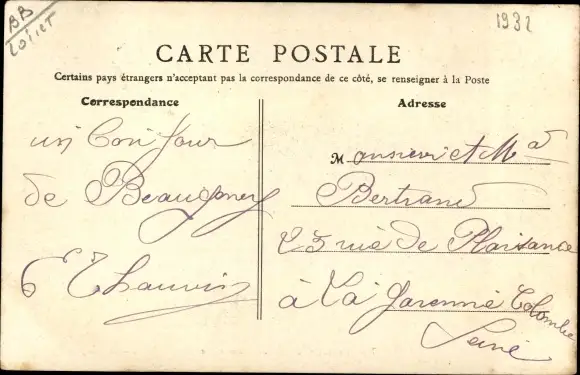 BB
Loiret
1932
CARTE POSTALE
Certains pays étrangers n'acceptant pas la correspondance de ce côté, se renseigner à la Poste
Correspondance
Adresse
un Bonjour
de Beaugency
Chauvin
Monsieur et Mad
Bertrand
23 rue de Plaisance
à La Garenne Colombe
Seine